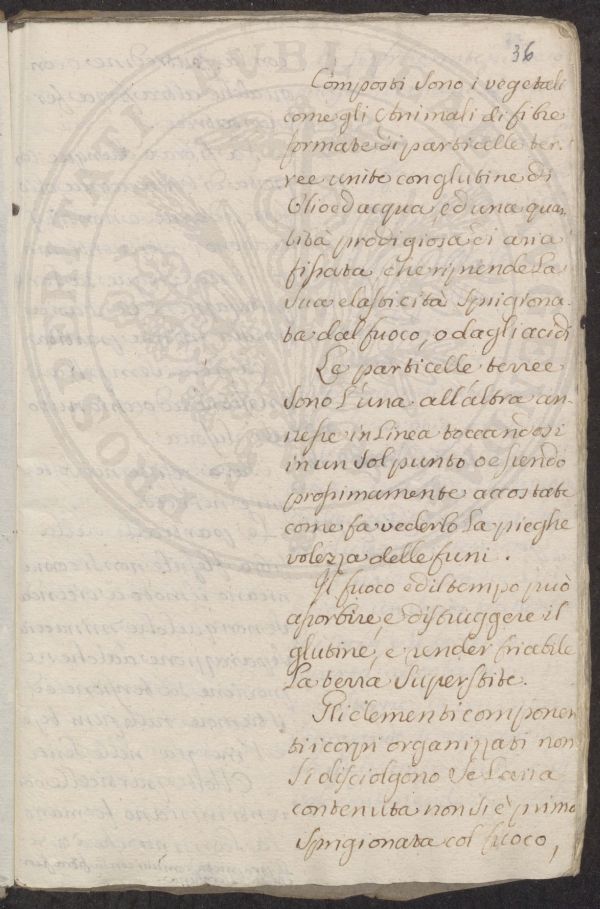 36
Composti sono i vegetali
come gli Animali di fibre
formate di particelle ter-
ree unite con glutine di
Olio ed acqua ed una quan
tità prodigiosa di aria
fissata che riprende la
sua elasticità sprigiona-
ta dal fuoco, o dagli acidi
Le particelle terree
sono l'una all'altra an-
nesse in linea toccandosi
in un sol punto od essendo
prossimamente accostate
come fa vederlo la pieghe
volezza delle funi.
Il fuoco ed il tempo può
asportare, e distruggere il
glutine, e render friabile
la terra superstite.
Gli elementi componen
ti i corpi organizzati non
si disciolgono se l'aria
contenuta non si è prima
sprigionata col fuoco,